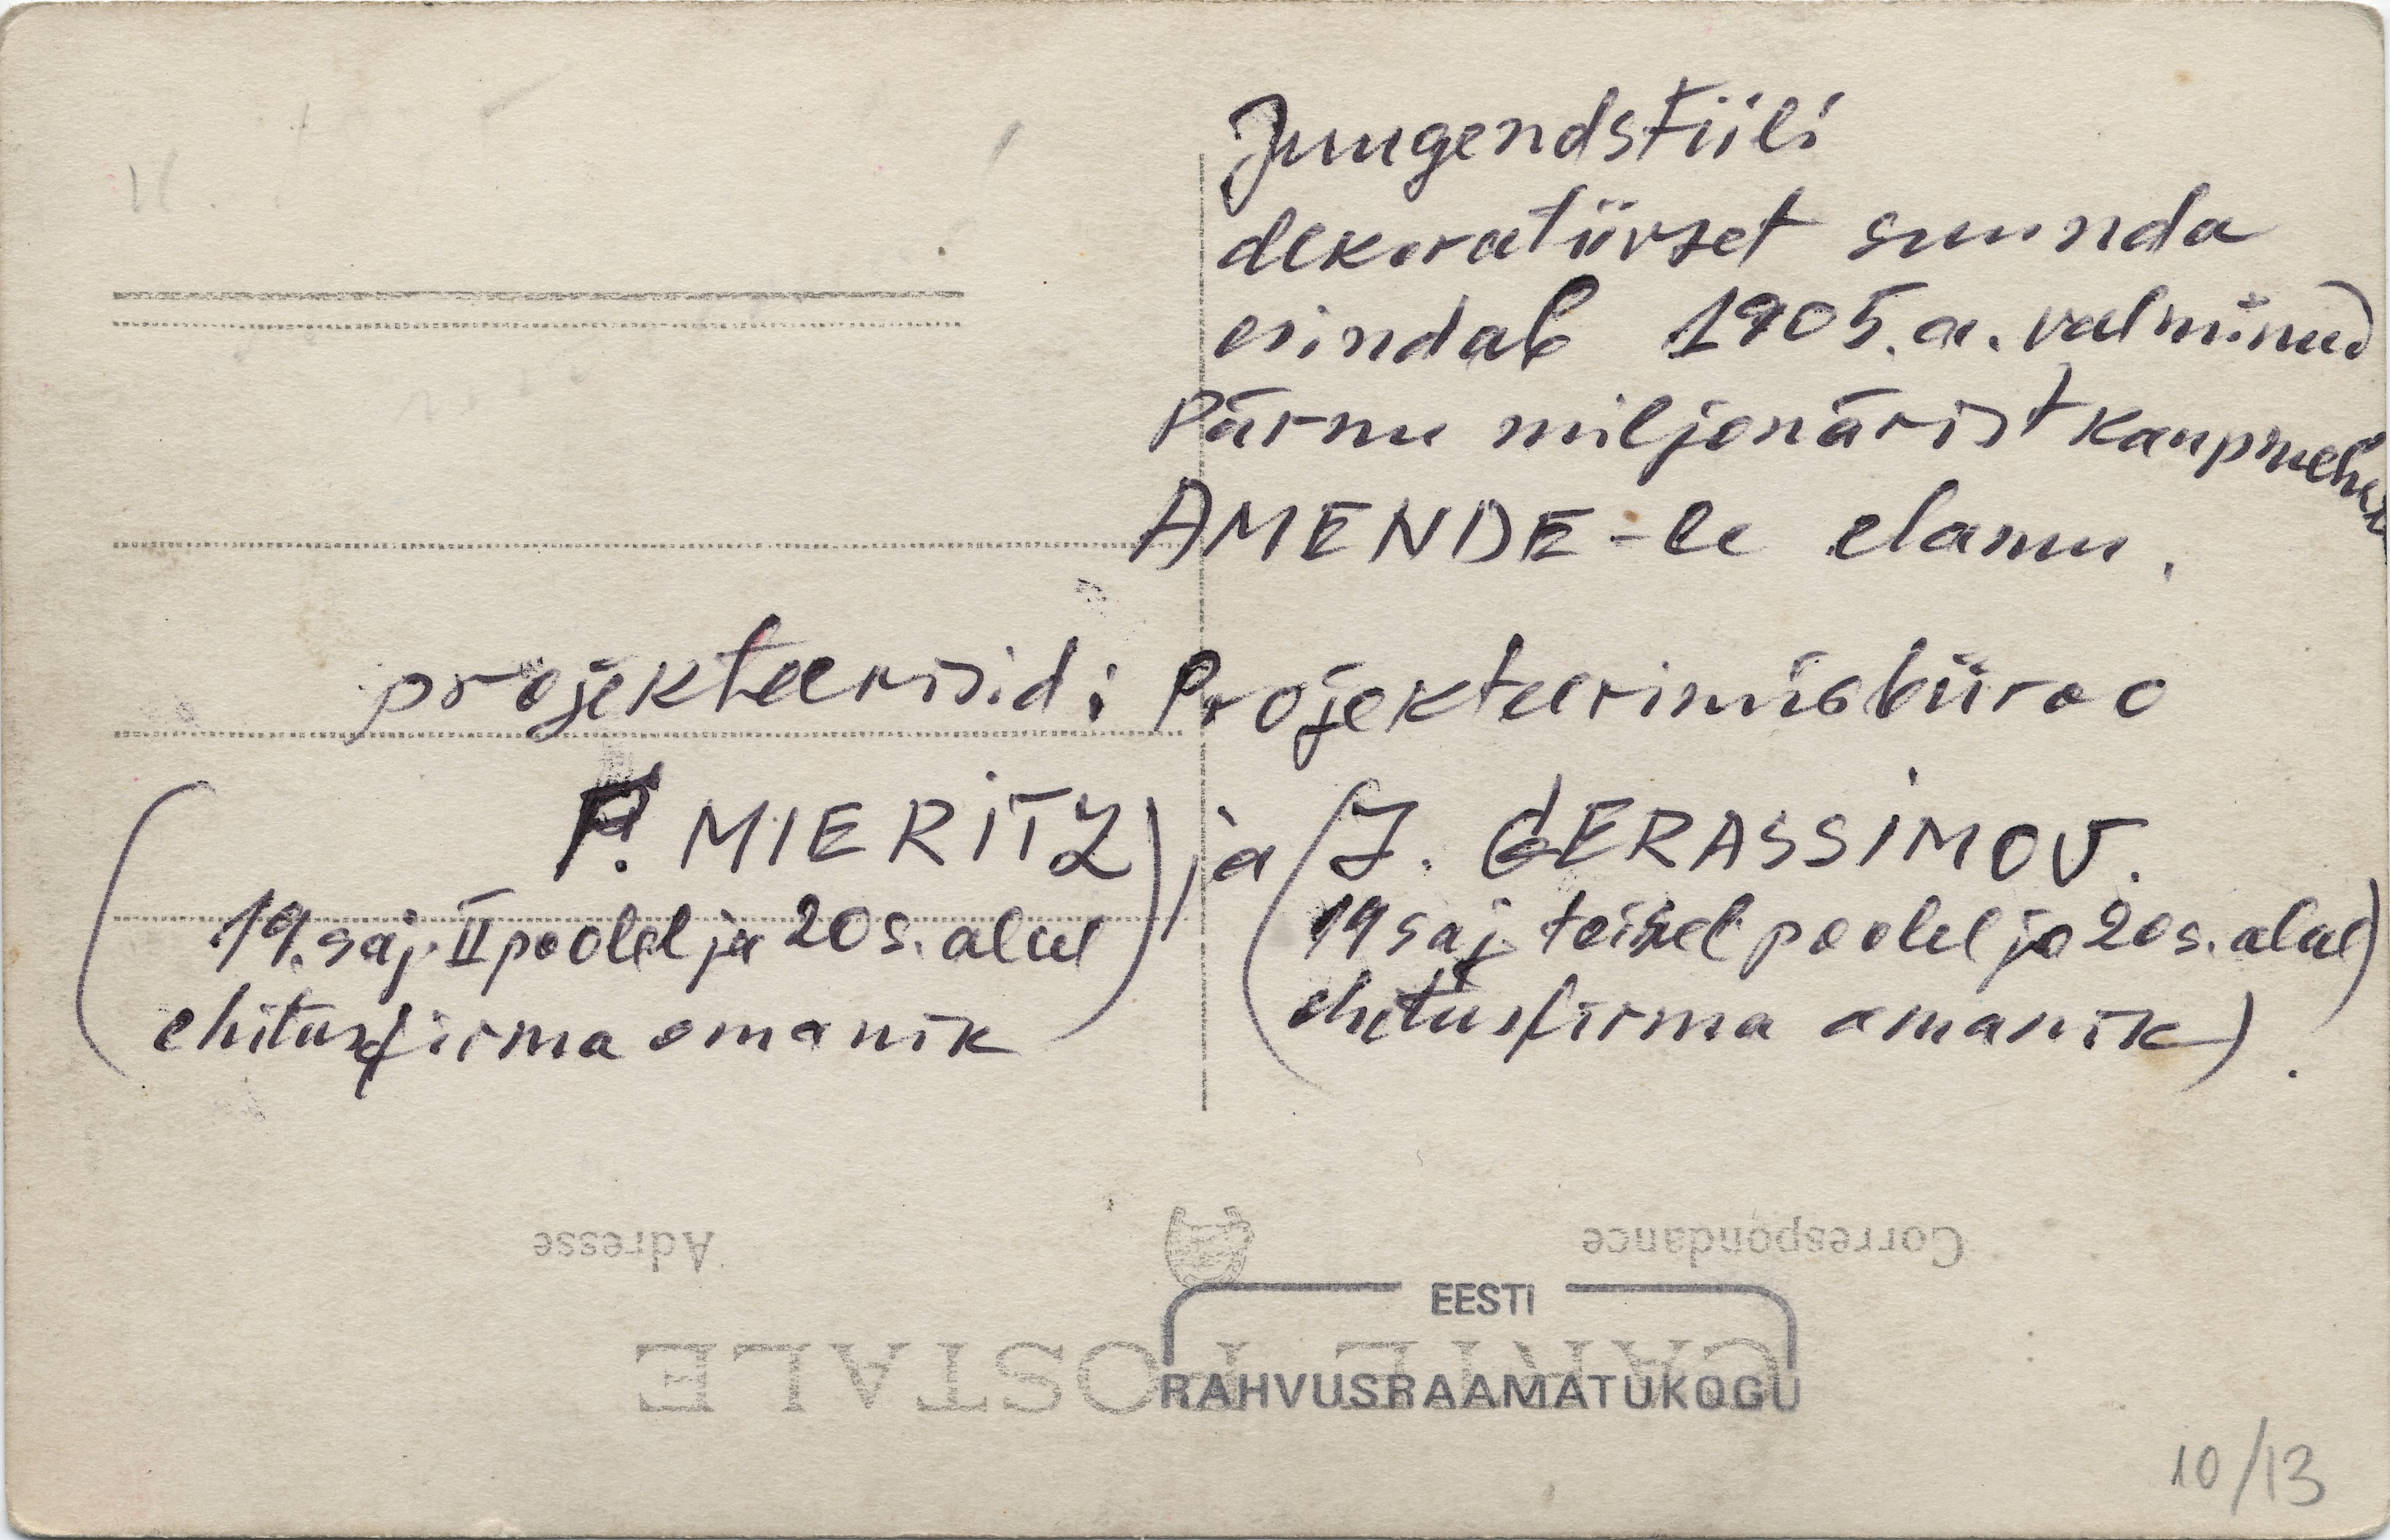 Juugendstiili
dekoratiivset suunda
esindab 1905.a. valminud
Pärnu miljonärist kaupmehele
AMENDE-le elamu.
projekteerisid: Projekteerimisbüroo
(P. MIERITZ) ja (J. GERASSIMOV.
19. saj. II poolel ja 20 s. alul
ehitusfirma omanik
19 saj. teisel poolel ja 20 s. alul)
ehitusfirma omanik).
Adresse
Correspondance
CARTE POSTALE
EESTI
RAHVUSRAAMATUKOGU
10/13